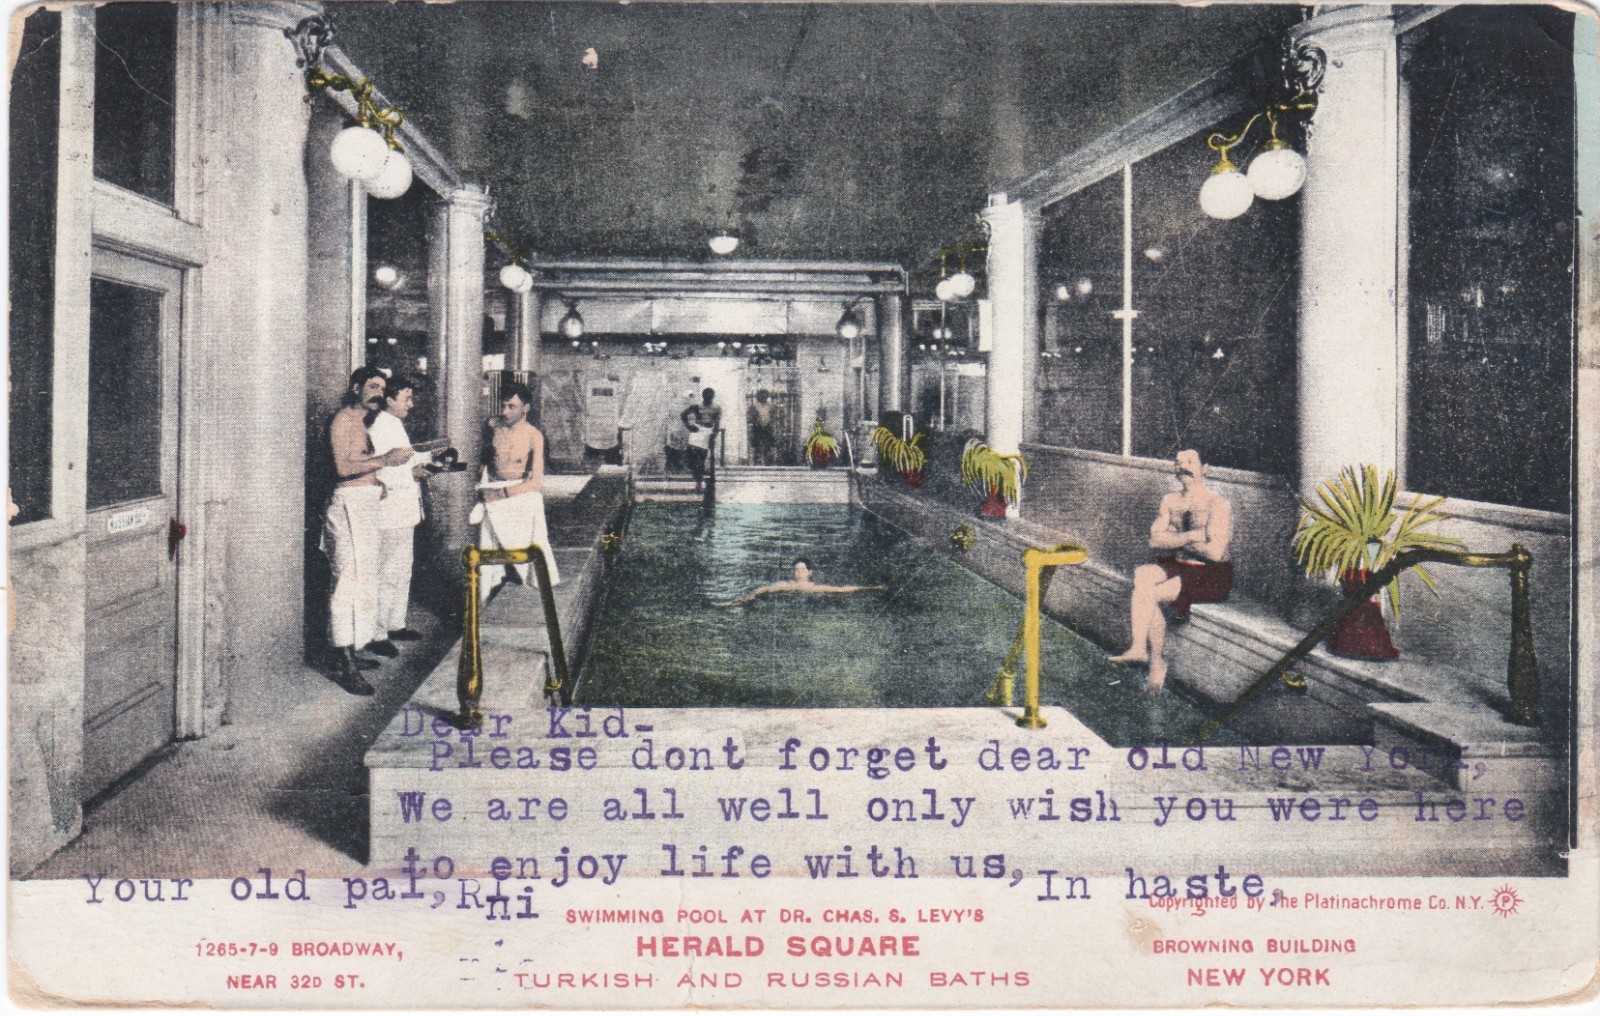 Dear Kid-
Please dont forget dear old New York,
We are all well only wish you were here
to enjoy life with us,
In haste,
Your old pal,
Copyrighted by The Platinachrome Co. N.Y. P
SWIMMING POOL AT DR. CHAS. S. LEVY'S
HERALD SQUARE
TURKISH AND RUSSIAN BATHS
1265-7-9 BROADWAY,
NEAR 32D ST.
BROWNING BUILDING
NEW YORK